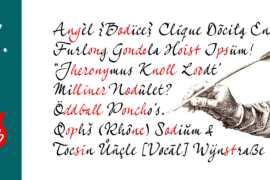 Angèl {Bodice} Clique Döcilq En
Furlong Gondola Hoist Ipsüm!
"Jheronymus Knoll Loodt'
Milliner Nodület?
Öddball Poncho's.
Qophš (Rhône) Sodiüm &
Tocsin Ůüçle [Vocāl] Wÿnstraße